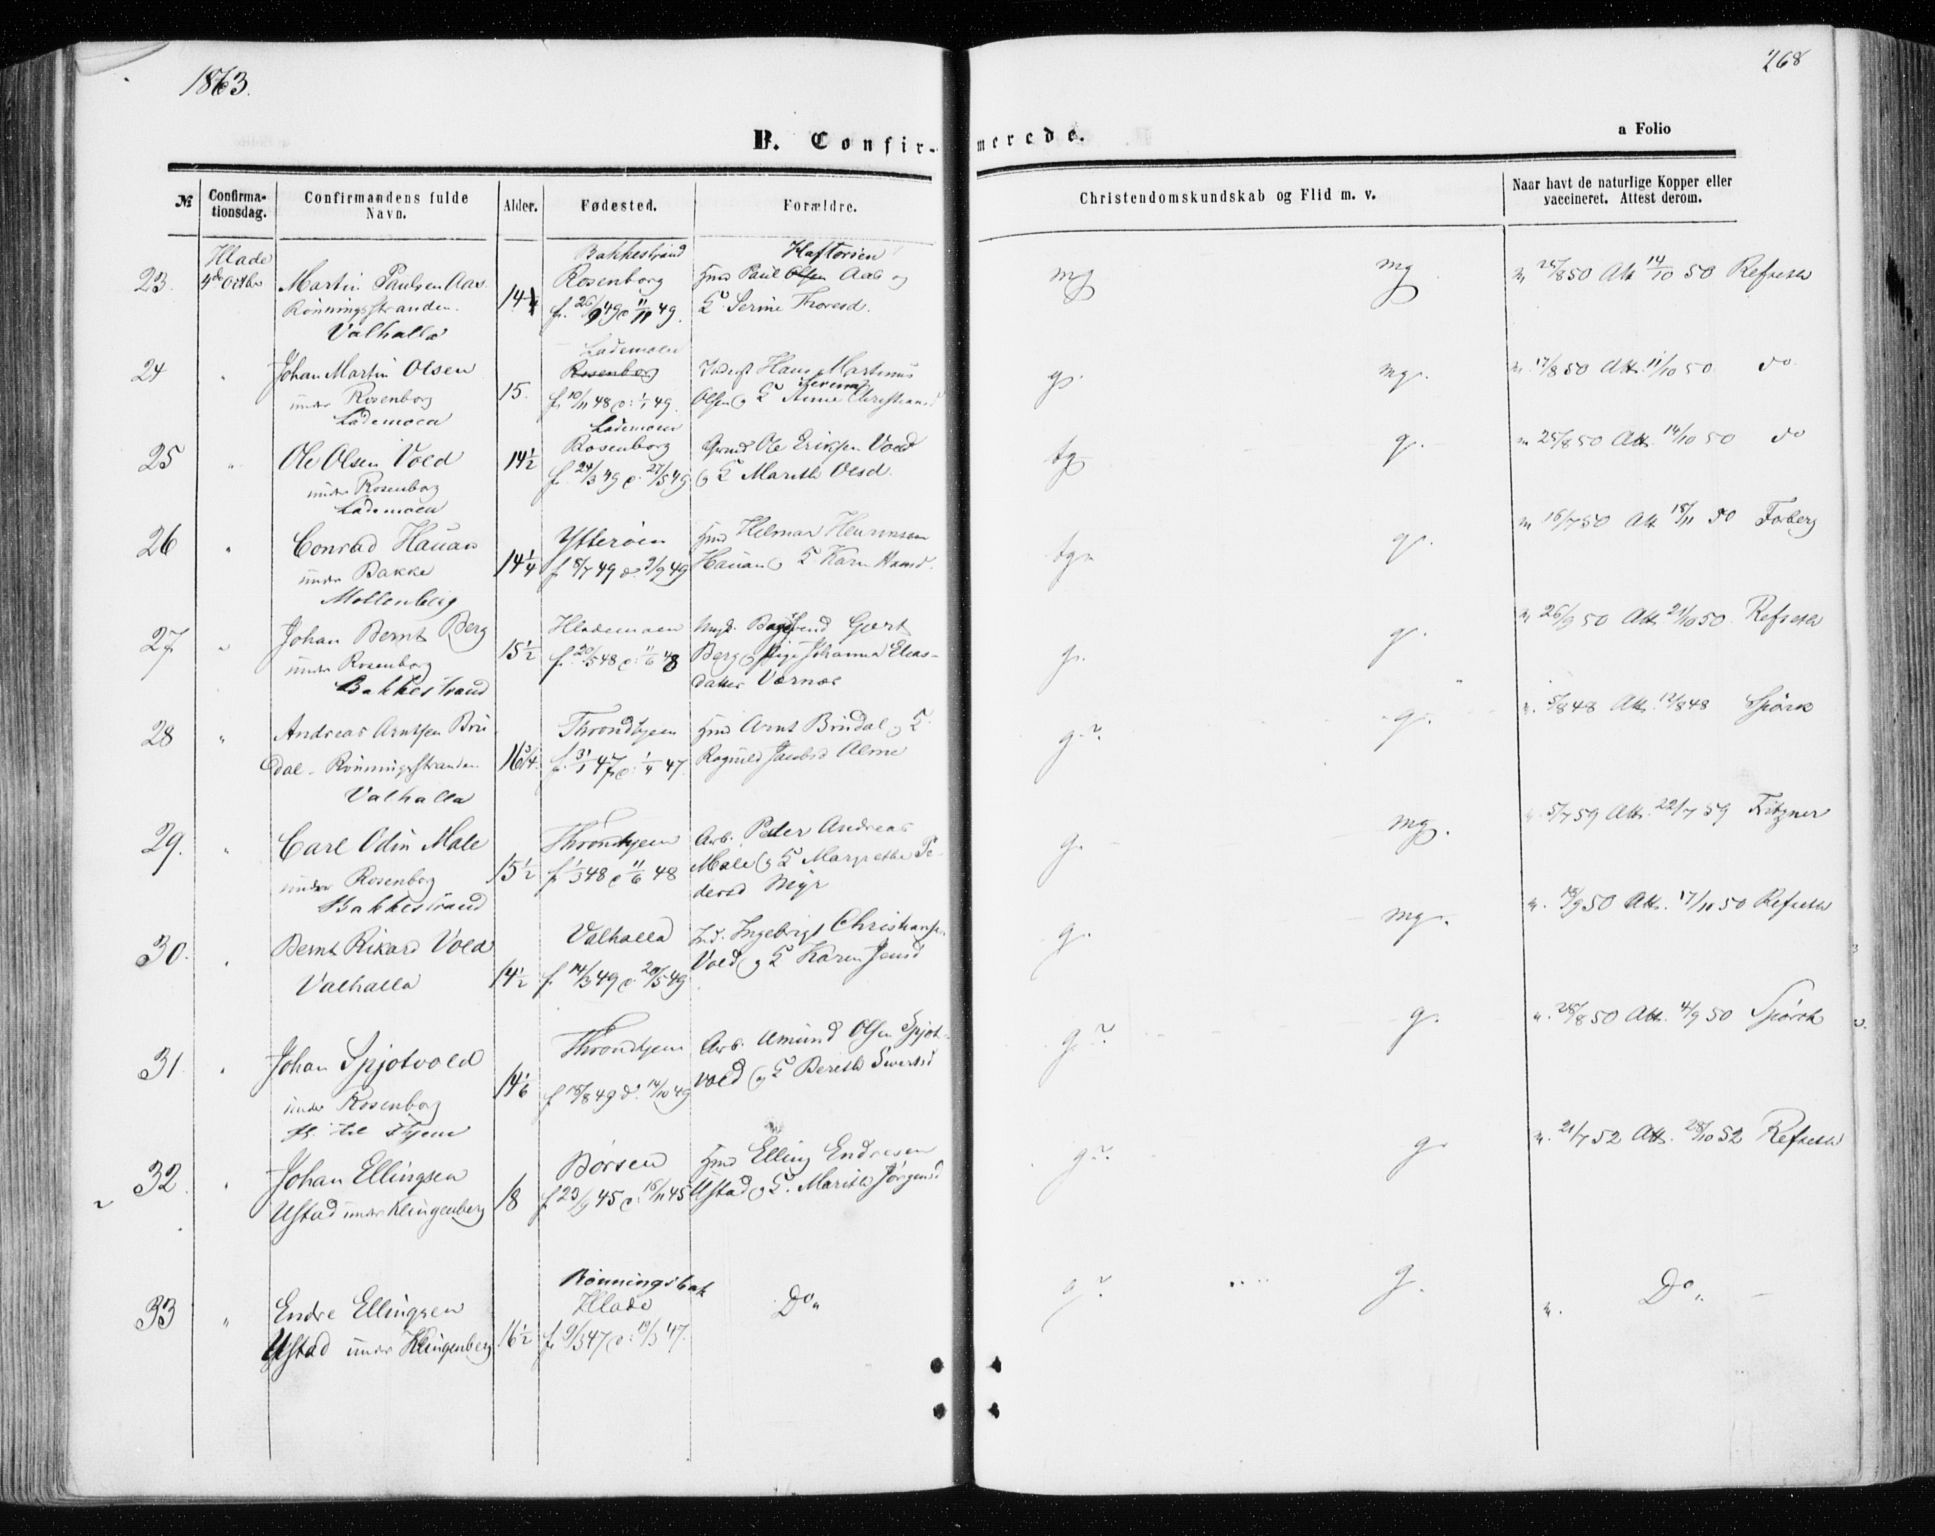 1863.
268
B. Confir-
merede.
a Folio
№
Confirma-
tionsdag.
Confirmandens fulde
Navn.
Alder.
Fødested.
Forældre.
Christendomskundskab og Flid m. v.
Naar havt de naturlige Kopper eller
vaccineret. Attest derom.
Hlade
4de Octbr
23.
Martin Paulsen Aas
Rönningsstranden.
Valhalla
14
Bakkestrand
Rosenborg
f. 26/9 49 d 11/11 49.
Haftorsen
Hmd Paul Olsen Aas og
K. Serine Thoresd.
mg
mg
v. 25/8 50 Att 14/10 50 Refseth
24
"
Johan Martin Olsen
under Rosenborg
Lademoen
15.
Lademoen
Rosenborg
f. 10/11 48 d: 1/1 49.
Inderst Hans Martinus
Olsen og K Anne Christiansd
g.
mg.
v. 17/8 50 Att. 11/10 50. do
25
"
Ole Olsen Vold
under Rosenborg
Lademoen
14½
Lademoen
Rosenborg
f. 24/3 49 d. 27/5 49
Grmd Ole Eriksen Vold
og K Marith Olsd.
tg
g.
v 25/8 50 Att. 14/10 50 do
26
"
Conrad Hauan
under Bakke
Mollenberg
14¼
Ytterøen
f 8/7 49 d. 9/9 49
Hmd Helmar Henriksen
Hauan og K Karen Hansd.
tg.
g.
v 16/7 50 Att 18/11 50 Forberg
27
"
Johan Bernt Berg
under Rosenborg
Bakkestrand
15½
Hlademoen
f. 20/5 48 d: 11/6 48
Berg og Pige Johanna Elias-
datter Værnæs
g.
g.
v 26/9 50 Att 21/10 50. Refseth
28
"
Andreas Arntsen Bru
dal - Rönningsstranden
Valhalla
16¾.
Throndhjem
f. 31/1 47 d: 1/4 47.
Hmd Arnt Brudal og K
Ragnild Jacobsd Alme
g.?
g.
v. 5/8 48 Att. 12/8 48 Spörck
29.
"
Carl Odin Male
under Rosenborg
Bakkestrand
15½
Throndhjem
f. 1/3 48 d 11/6 48
Arb. Peter Andreas
Male og K Margrethe Pe-
dersd Myr
g.
mg.
v. 5/7 59 Att. 22/7 59 Fitzner
30.
"
Bernt Rikard Vold
Valhalla
14½
Valhalla
f. 14/3 49 d. 20/5 49
Ind. Ingebrigt Christiansen
Vold og K Karen Jensd
g.
mg.
v. 18/9 50 Att. 17/11 50 Refseth
31
"
Johan Spjotvold
under Rosenborg
fl. til Thjem
14 1/6
Throndhjem
f 18/8 49 d. 14/10 49
Arb. Amund Olsen Spjot-
vold og K Bereth Sivertsd
g.?
g.
v. 28/8 50 Att. 4/9 50 Spörck
32
"
Johan Ellingsen
Ustad under Klingenberg
18
Börsen
f 23/9 45 d: 16/11 45
Hmd Elling Endresen
Ustad og K. Marith Jörgensd
g?
g
v. 21/7 52 Att. 28/10 52 Refseth
33
"
Endre Ellingsen
Ustad under Klingenberg
16½
Rönningsbak
Hlade
f. 9/3 47 d: 19/3 47.
Do"
g.?
g.
v. Do"